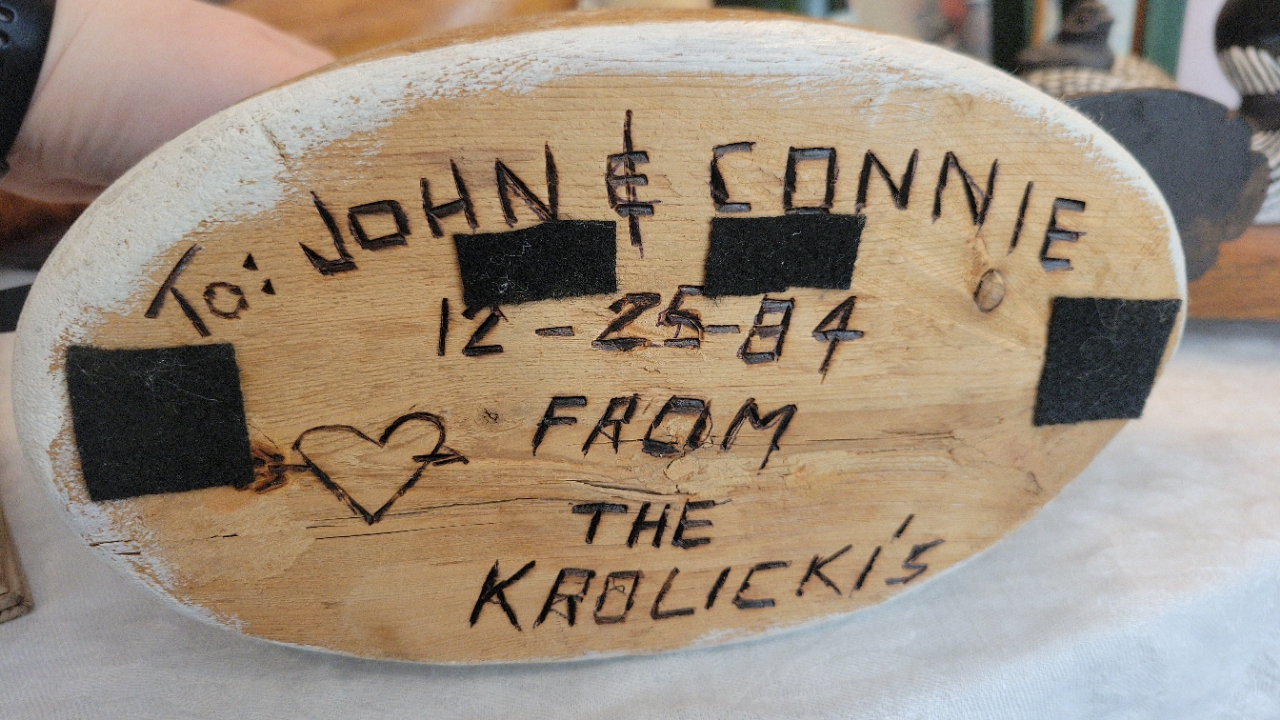 To: JOHN & CONNIE
12-25-84
FROM
THE
KROLICKI'S